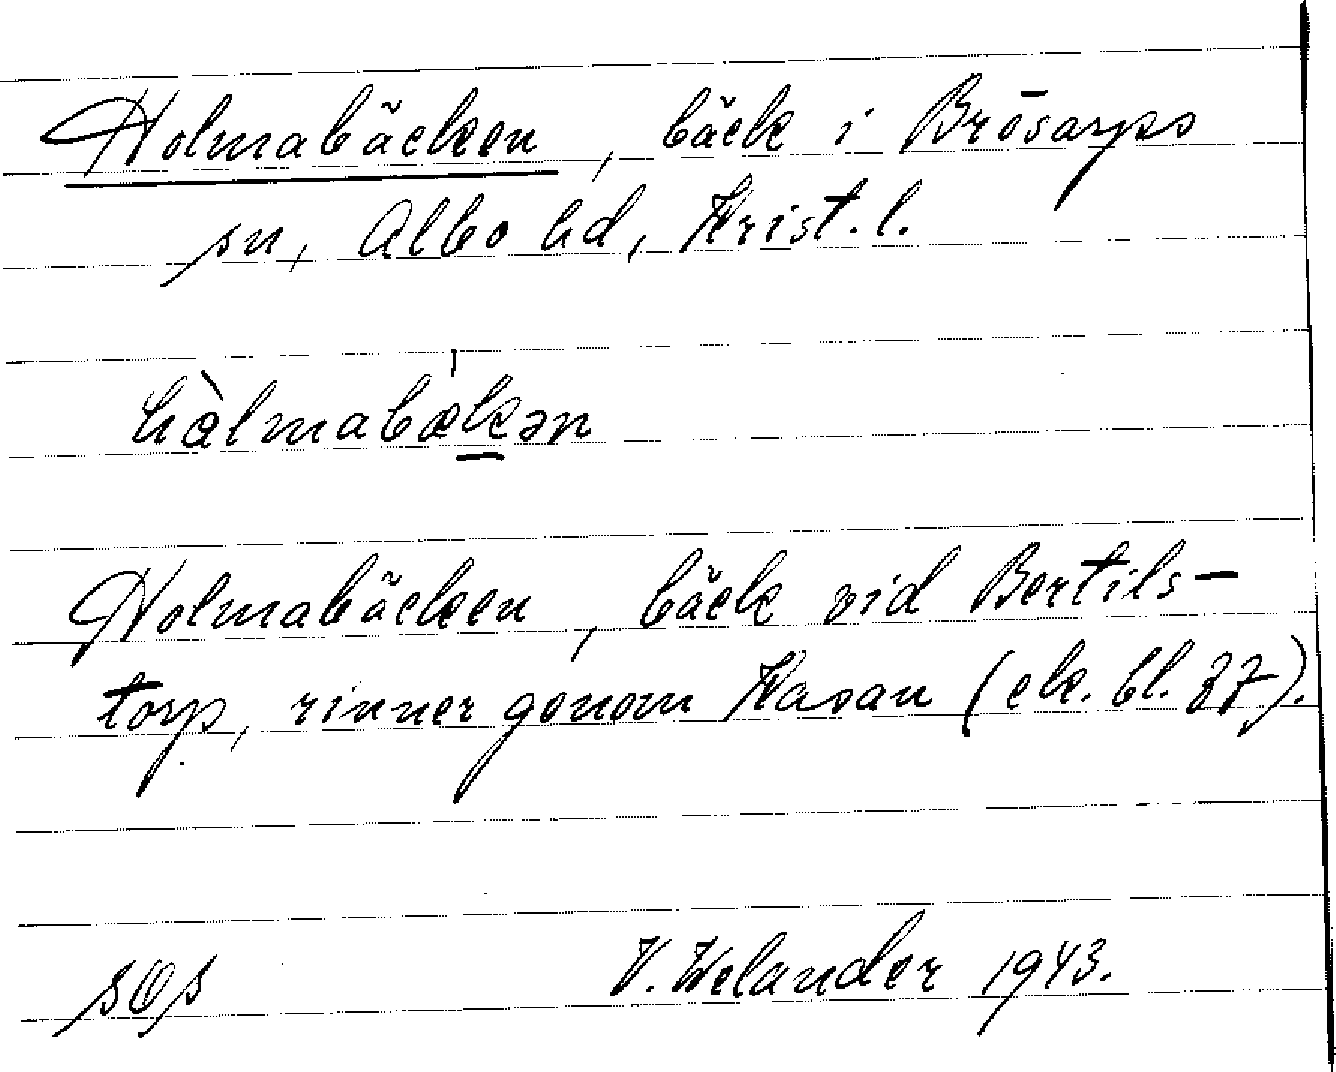 Holmabäcken, bäck i Brösarps
sn, Albo hd, Krist. l.
hàlmabækən
Holmabäcken, bäck vid Bertils-
torp, rinner genom Kasan (ek. bl. 37).
SOS V. Welander 1943.